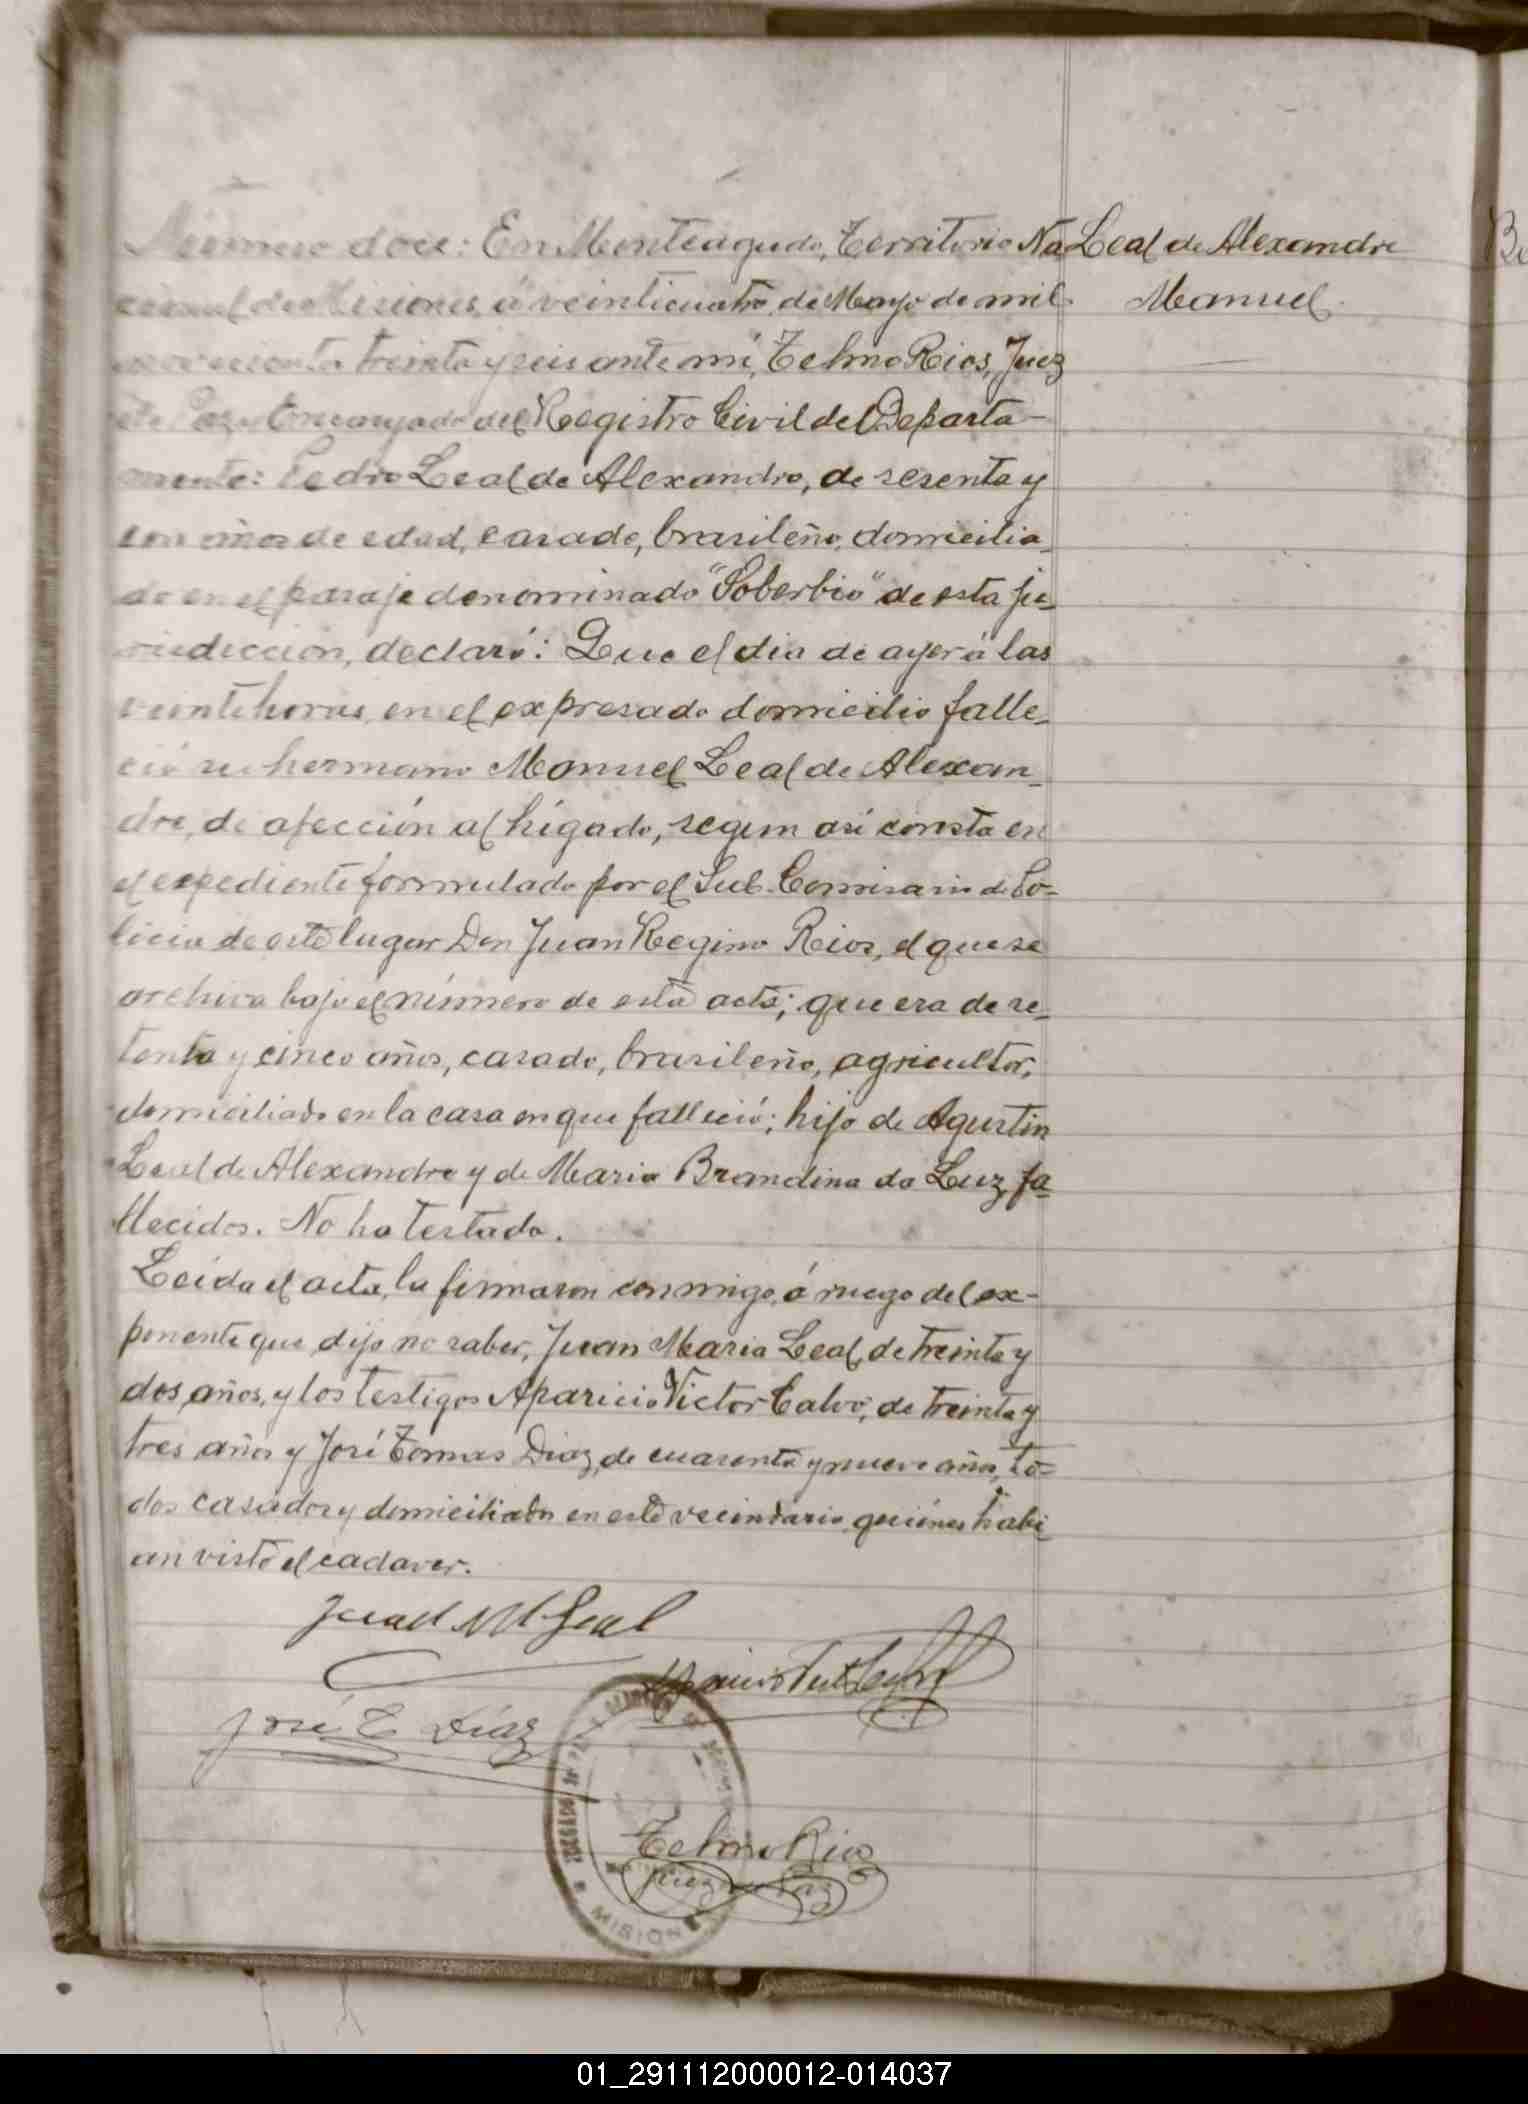 Número doce: En Monteagudo, Territorio Na
cional de Misiones, á veinticuatro de Mayo de mil
novecientos treinta y seis ante mí, Telmo Rios, Juez
de Paz y Encargado del Registro Civil del Departa-
mento: Pedro Leal de Alexandro, de sesenta y
años de edad, casado, brasileño, domicilia-
do en el paraje denominado "Soberbio" de esta ju-
risdiccion, declaró: Que el dia de ayer á las
veinte horas, en el expresado domicilio falle-
ció su hermano Manuel Leal de Alexan-
dre, de afección al hígado, segun asi consta en
el expediente formulado por el Sub-Comisario de Po-
licia de este lugar Don Juan Regino Rios, el que se
archiva bajo el número de esta acta; que era de se-
tenta y cinco años, casado, brasileño, agricultor,
domiciliado en la casa en que falleció; hijo de Agustin
Leal de Alexandre y de Maria Brandina da Luz, fa-
llecidos. No ha testado.
Leida el acta, la firmaron conmigo, á ruego del ex-
ponente que dijo no saber, Juan Maria Leal, de treinta y
dos años, y los testigos Aparicio Victor Calvo, de treinta y
tres años y José Tomas Diaz, de cuarenta y nueve años, to-
dos casados y domiciliados en este vecindario, quiénes habi
an visto el cadaver.
Leal de Alexandre
Manuel.
Juan M Leal
José T Díaz
Telmo Rios
Juez de Paz
MISIONES
01_291112000012-014037